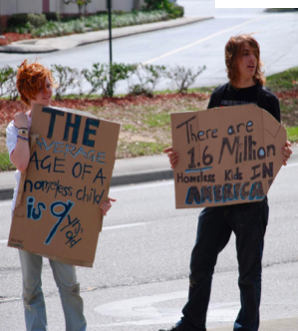 THE
AVERAGE
AGE OF A
homeless child
is 9
yrs old
There are
1.6 Million
Homeless Kids IN
AMERICA